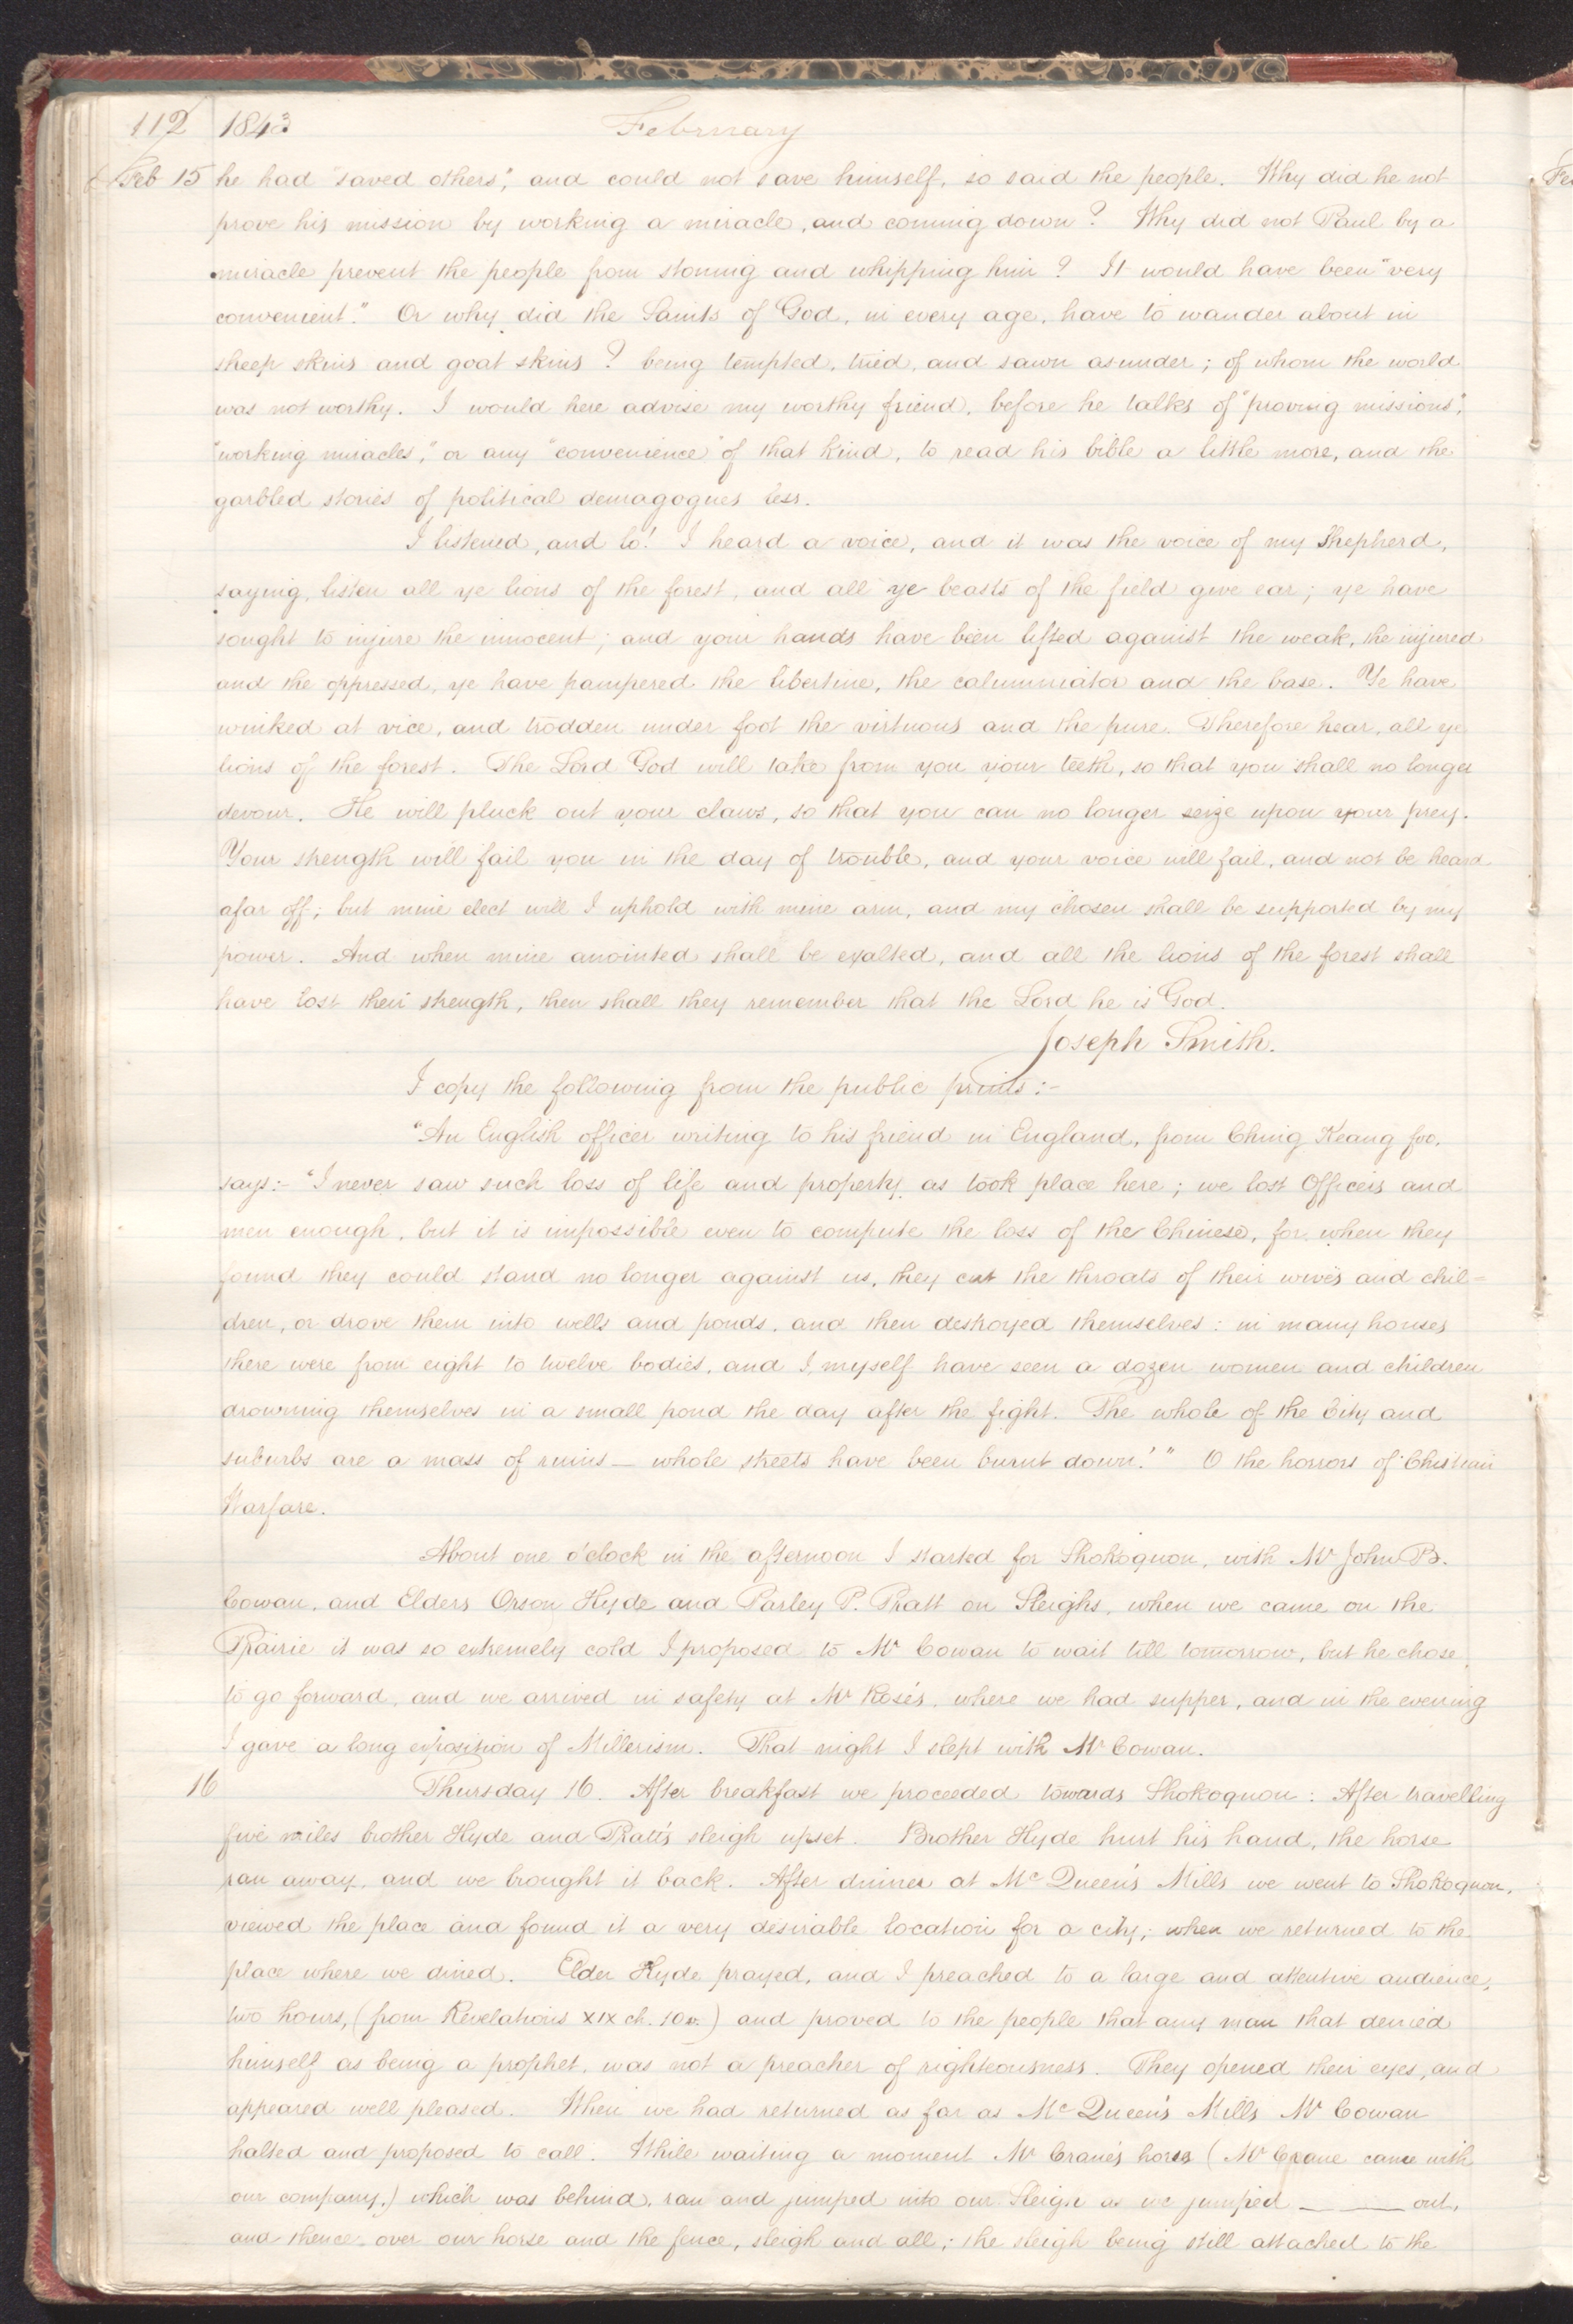 112 1843 February
Feb 15 he had "saved others", and could not save himself, so said the people. Why did he not
prove his mission by working a miracle, and coming down? Why did not Paul by a
miracle prevent the people from stoning and whipping him? It would have been "very
convenient." Or why did the Saints of God, in every age, have to wander about in
sheep skins and goat skins? being tempted, tried, and sawn asunder; of whom the world
was not worthy. I would here advise my worthy friend, before he talks of "proving missions",
"working miracles," or any "convenience" of that kind, to read his bible a little more, and the
garbled stories of political demagogues less.
I listened, and lo! I heard a voice, and it was the voice of my Shepherd,
saying, listen all ye lions of the forest, and all ye beasts of the field give ear; ye have
sought to injure the innocent; and your hands have been lifted against the weak, the injured
and the oppressed, ye have pampered the libertine, the calumniator and the base. Ye have
winked at vice, and trodden under foot the virtuous and the pure. Therefore hear, all ye
lions of the forest. The Lord God will take from you your teeth, so that you shall no longer
devour. He will pluck out your claws, so that you can no longer seize upon your prey.
Your strength will fail you in the day of trouble, and your voice will fail, and not be heard
afar off; but mine elect will I uphold with mine arm, and my chosen shall be supported by my
power. And when mine anointed shall be exalted, and all the lions of the forest shall
have lost their strength, then shall they remember that the Lord he is God.
Joseph Smith.
I copy the following from the public prints:-
"An English officer writing to his friend in England, from Ching Keang foo,
says:- "I never saw such loss of life and property as took place here; we lost Officers and
men enough, but it is impossible even to compute the loss of the Chinese, for when they
found they could stand no longer against us, they cut the throats of their wives and chil=
dren, or drove them into wells and ponds, and then destroyed themselves: in many houses
there were from eight to twelve bodies, and I, myself have seen a dozen women and children
drowning themselves in a small pond the day after the fight. The whole of the City and
suburbs are a mass of ruins — whole streets have been burnt down.'" O the horrors of Christian
Warfare.
About one o'clock in the afternoon I started for Shokoquon, with Mr John B.
Cowan, and Elders Orson Hyde and Parley P. Pratt on Sleighs, when we came on the
Prairie it was so extremely cold I proposed to Mr Cowan to wait till tomorrow, but he chose
to go forward, and we arrived in safety at Mr Rose's, where we had supper, and in the evening
I gave a long exposition of Millerism. That night I slept with Mr Cowan.
16 Thursday 16. After breakfast we proceeded towards Shokoquon: After travelling
five miles brother Hyde and Pratt's sleigh upset. Brother Hyde hurt his hand, the horse
ran away, and we brought it back. After dinner at Mc Queen's Mills we went to Shokoquon,
viewed the place and found it a very desirable location for a city; when we returned to the
place where we dined. Elder Hyde prayed, and I preached to a large and attentive audience,
two hours, (from Revelations XIX ch. 10 v.) and proved to the people that any man that denied
himself as being a prophet, was not a preacher of righteousness. They opened their eyes, and
appeared well pleased. When we had returned as far as Mc Queen's Mills Mr Cowan
halted and proposed to call. While waiting a moment Mr Crane's horse (Mr Crane came with
our company,) which was behind, ran and jumped into our Sleigh as we jumped — — out,
and thence over our horse and the fence, sleigh and all; the sleigh being still attached to the